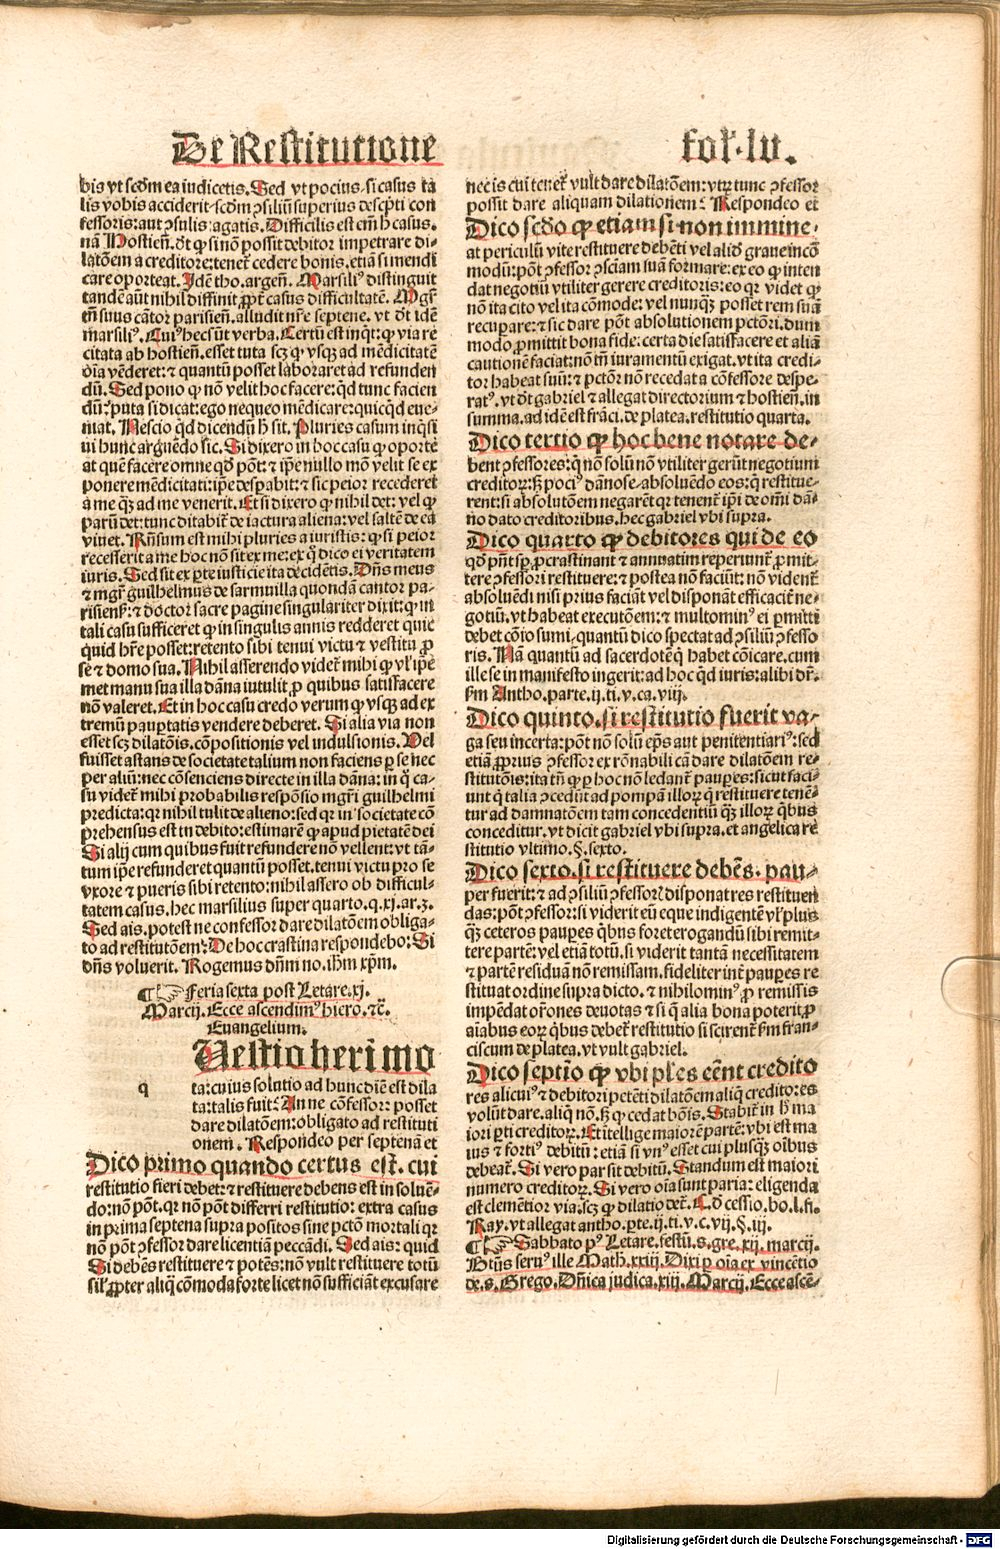 De Restitutione
fol. lv.
bis vt scdm ea iudicetis. Sed vt pocius. si casus ta
lis vobis acciderit. scdm ꝯsiliū superius descpti con
fessoris: aut ꝯsulis: agatis. Difficilis est em̄ h casus.
nā Hostien̄. dt ꝙ si nō possit debitor impetrare di-
latōem a creditore: tenet cedere bonis. etiā si mendi
care oporteat. Idē tho. argen̄. Marsiliꝰ distinguit
tandē aūt nihil diffinit ꝓpt casus difficultatē. Mgr
tn̄ suus cātor parisien̄. alludit nr̄e septene. vt dt idē
marsiliꝰ. Cuiꝰ hec sūt verba. Certū est inqt: ꝙ via re
citata ab hostien̄. esset tuta scꝫ ꝙ vsqꝫ ad mēdicitatē
oīa vēderet: ⁊ quantū posset laboraret ad refunden
dū. Sed pono ꝙ nō velit hoc facere: qd tunc facien
dū: puta si dicat: ego nequeo mēdicare: quicqd eue-
niat. Nescio qd dicendū h sit. Pluries casum inqsi
ui hunc arguēdo sic. Si dixero in hoc casu ꝙ oporte
at quē facere omne qd pōt: ⁊ ipē nullo mō velit se ex
ponere mēdicitati: ipē despabit: ⁊ sic peior recederet
a me qꝫ ad me venerit. Et si dixero ꝙ nihil det: vel ꝙ
parū det: tunc ditabit de iactura aliena: vel saltē de ea
viuet. Rn̄sum est mihi pluries a iuristis: ꝙ si peior
recesserit a me hoc nō sit ex me: ex q dico ei veritatem
iuris. Sed sit ex pte iusticie ita decidētis. Dn̄s meus
⁊ mgr guilhelmus de sarmuilla quondā cantor pa-
risien̄: ⁊ doctor sacre pagine singulariter dixit: ꝙ in
tali casu sufficeret ꝙ in singulis annis redderet quic
quid hr̄e posset: retento sibi tenui victu ⁊ vestitu ꝓ
se ⁊ domo sua. Nihil asserendo videt mihi ꝙ vl ipē
met manu sua illa dāna intulit, ꝓ quibus satisfacere
non valeret. Et in hoc casu credo verum ꝙ vsqꝫ ad ex
tremū pauptatis vendere deberet. Si alia via non
esset scꝫ dilatōis. cōpositionis vel indulsionis. Vel
fuisset astans de societate talium non faciens p se nec
per aliū: nec cōsenciens directe in illa dāna: in q ca-
su videt mihi probabilis respōsio mgri guilhelmi
predicta: qr nihil tulit de alieno: sed qr in societate cō
prehensus est in debito: estimarē ꝙ apud pietatē dei
Si alij cum quibus fuit refundere nō vellent: vt tā-
tum ipē refunderet quantū posset. tenui victu pro se
vxore ⁊ pueris sibi retento: nihil assero ob difficul-
tatem casus. hec marsilius super quarto. q. xj. ar. 3.
Sed ais. potest ne confessor dare dilatōem obliga-
to ad restitutōem: De hoc crastina respondebo: Si
dn̄s voluerit. Rogemus dn̄m no. ihm xpm.
¶ ☞ Feria sexta post Letare. xj.
Marcij. Ecce ascendimꝰ hiero. ⁊c̄.
Euangelium.
q
Uestio heri mo
ta: cuius solutio ad hunc diē est dila
ta: talis fuit: An ne cōfessor: posset
dare dilatōem: obligato ad restituti
onem. Respondeo per septenā et
Dico primo quando certus est. cui
restitutio fieri debet: ⁊ restituere debens est in soluē-
do: non pōt. qr nō pōt differri restitutio: extra casus
in prima septena supra positos sine pctō mortali qr
nō pōt ꝯfessor dare licentiā peccādi. Sed ais: quid
Si debēs restituere ⁊ potēs: nō vult restituere totū
sil ꝓpter aliq cōmoda forte licet nō sufficiāt excusare
nec is cui tenet vult dare dilatōem: vtrū tunc ꝯfessor
possit dare aliquam dilationem: Respondeo et
Dico scdo ꝙ etiam si non immine-
at periculū vite restituere debēti vel aliud graue incō
modū: pōt ꝯfessor ꝯsciam suā formare: ex eo ꝙ inten
dat negotiū vtiliter gerere creditoris: eo qr videt ꝙ
nō ita cito vel ita cōmode: vel nunqꝫ posset rem suā
recupare: ⁊ sic dare pōt absolutionem pctōri. dum
modo ꝓmittit bona fide: certa die satisfacere et aliā
cautionē faciat: nō tn̄ iuramentū exigat. vt ita credi-
tor habeat suū: ⁊ pctōr nō recedat a cōfessore despe-
ratꝰ. vt dt gabriel ⁊ allegat directorium ⁊ hostien̄. in
summa. ad idē est frāci. de platea. restitutio quarta.
Dico tertio ꝙ hoc bene notare de-
bent ꝯfessores: q nō solū nō vtiliter gerūt negotium
creditorū: sꝫ pociꝰ dānose. absoluēdo eos: q restitue-
rent: si absolutōem negarēt qr tenent ipi de omi dā-
no dato creditoribus. hec gabriel vbi supra.
Dico quarto ꝙ debitores qui de eo
qd pn̄t sp ꝓcrastinant ⁊ annuatim reperiunt ꝓmit-
tere ꝯfessori restituere: ⁊ postea nō faciūt: nō vident
absoluēdi nisi prius faciāt vel disponāt efficacit ne-
gotiū. vt habeat executōem: ⁊ multominꝰ ei pmitti
debet cōio sumi, quantū dico spectat ad ꝯsiliū ꝯfesso
ris. Nā quantū ad sacerdotē q habet cōicare, cum
ille se in manifesto ingerit: ad hoc qd iuris: alibi dr̄.
sm Antho. parte. ij. ti. v. ca. viij.
Dico quinto. si restitutio fuerit va-
ga seu incerta: pōt nō solū ep̄s aut penitentiariꝰ: sed
etiā ꝓprius ꝯfessor ex rōnabili cā dare dilatōem re-
stitutōis: ita tn̄ ꝙ p hoc nō ledant paupes: sicut faci-
unt q talia ꝯcedūt ad pompā illorū q restituere tenē-
tur ad damnatōem tam concedentiū qꝫ illorū qbus
conceditur. vt dicit gabriel vbi supra. et angelica re
stitutio vltimo. §. sexto.
Dico sexto. si restituere debēs. pau-
per fuerit: ⁊ ad ꝯsiliū ꝯfessorꝭ disponat res restituen
das: pōt ꝯfessor: si viderit eū eque indigentē vl plus
qꝫ ceteros paupes qbus foret erogandū sibi remit-
tere partē: vel etiā totū. si viderit tantā necessitatem
⁊ partē residuā nō remissam. fideliter int paupes re
stituat ordine supra dicto. ⁊ nihilominꝰ ꝓ remissis
impēdat orōnes deuotas ⁊ si q alia bona poterit, ꝓ
aīabus eorū qbus debet restitutio si scirent sm fran-
ciscum de platea. vt vult gabriel.
Dico septīo ꝙ vbi ples eēnt credito
res alicuiꝰ ⁊ debitori petēti dilatōem aliq creditores
volūt dare. aliq nō. sꝫ ꝙ cedat bōis. Stabit in h ma
iori pti creditorū. Et itellige maiorē partē: vbi est ma
ius ⁊ fortiꝰ debitū: etiā si vnꝰ esset cui plusqꝫ oībus
debeat. Si vero par sit debitū. Standum est maiori
numero creditorū. Si vero oīa sunt paria: eligenda
est clemētior via: scꝫ ꝙ dilatio det. C. q cessio. bo. l. fi.
Ray. vt allegat antho. pte. ij. ti. v. c. vij. §. iij.
¶ ☞ Sabbato pꝰ Letare. festū. s. gre. xij. marcij.
Btūs seruꝰ ille Math. xxiij. Dixi p oīa ex vincetio
de. s. Grego. Dn̄ica iudica. xiij. Marcij. Ecce ascē-
Digitalisierung gefördert durch die Deutsche Forschungsgemeinschaft - DFG